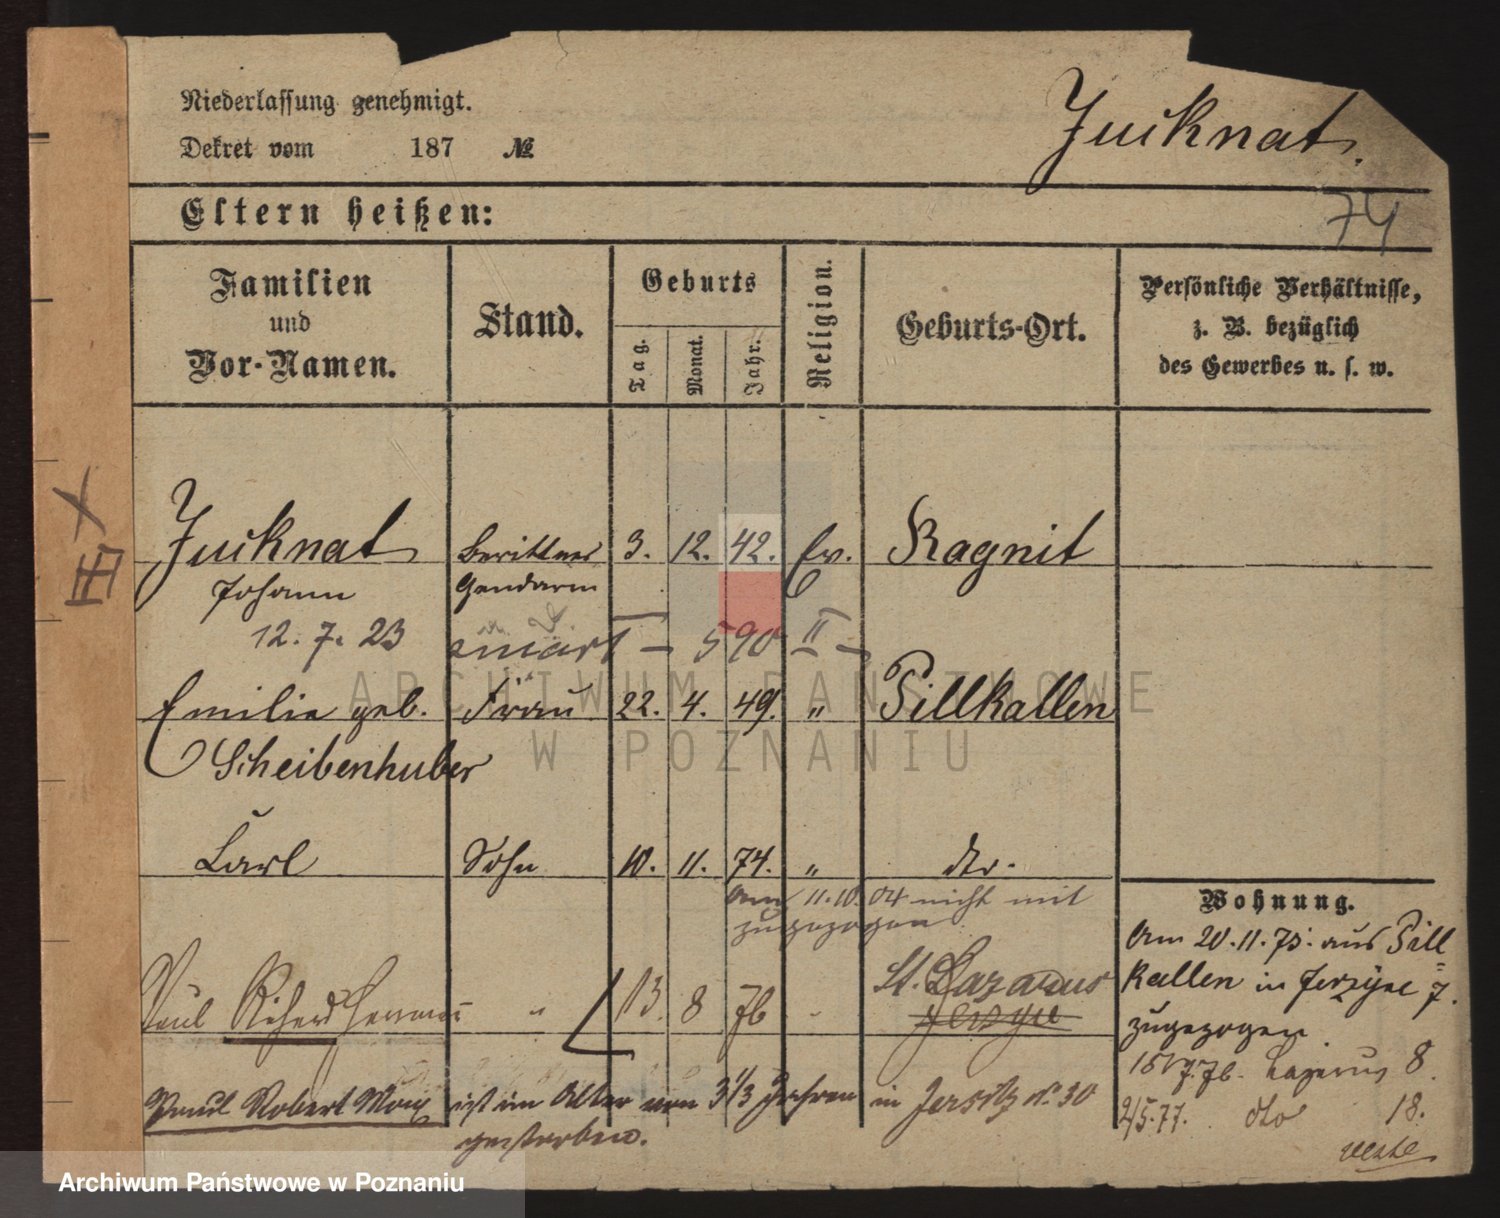 Niederlassung genehmigt.
Dekret vom 187 №
Jucknat.
74
Eltern heißen:
Familien und Vor-Namen.
Stand.
Geburts
Tag. Monat. Jahr.
Religion.
Geburts-Ort.
Persönliche Verhältnisse, z. B. bezüglich des Gewerbes u. s. w.
Jucknat berittner 3. 12. 42. Ev. Ragnit
Johann Gendarm
12. 7. 23 590 II
Emilie geb. Frau 22. 4. 49. " Pillkallen
Scheibenhuber
Carl Sohn 10. 11. 74. " dto.
am 11.10.04 nicht mit
zugezogen
Paul Richard " 13 8 76 St. Lazarus
Jerzyce
Paul Robert Max ist im Alter von 3 1/3 Jahren in Jersitz № 30
gestorben.
Wohnung.
Am 20.11.75. aus Pill=
kallen in Jerzyce 7.
zugezogen
Lazarus 8.
2/5.77. dto 18.
ARCHIWUM PAŃSTWOWE
W POZNANIU
Archiwum Państwowe w Poznaniu